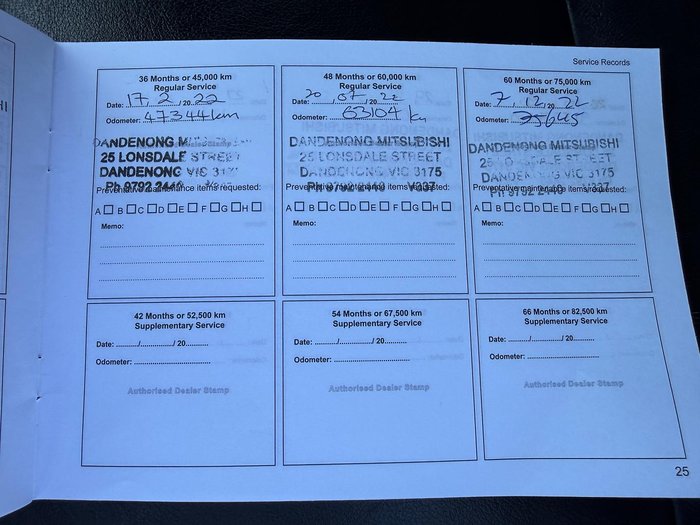 Service Records
36 Months or 45,000 km
Regular Service
Date: 17 / 2 / 20 22
Odometer: 47344km
DANDENONG
25 LONSDALE STREET
DANDENONG VIC
Ph 9792 2440
Preventative maintenance items requested:
A B C D E F G H
Memo:
48 Months or 60,000 km
Regular Service
Date: 20 / 07 / 20 22
Odometer: 63104 km
DANDENONG MITSUBISHI
25 LONSDALE STREET
DANDENONG VIC 3175
Ph 9792 2440 V337
Preventative maintenance items requested:
A B C D E F G H
Memo:
60 Months or 75,000 km
Regular Service
Date: 7 / 12 / 20 22
Odometer:
DANDENONG MITSUBISHI
25 LONSDALE STREET
DANDENONG VIC 3175
Ph 9792 2440 V337
Preventative maintenance items requested:
A B C D E F G H
Memo:
42 Months or 52,500 km
Supplementary Service
Date: ............/............/ 20............
Odometer: ........................................
Authorised Dealer Stamp
54 Months or 67,500 km
Supplementary Service
Date: ............/............/ 20............
Odometer: ........................................
Authorised Dealer Stamp
66 Months or 82,500 km
Supplementary Service
Date: ............/............/ 20............
Odometer: ........................................
Authorised Dealer Stamp
25